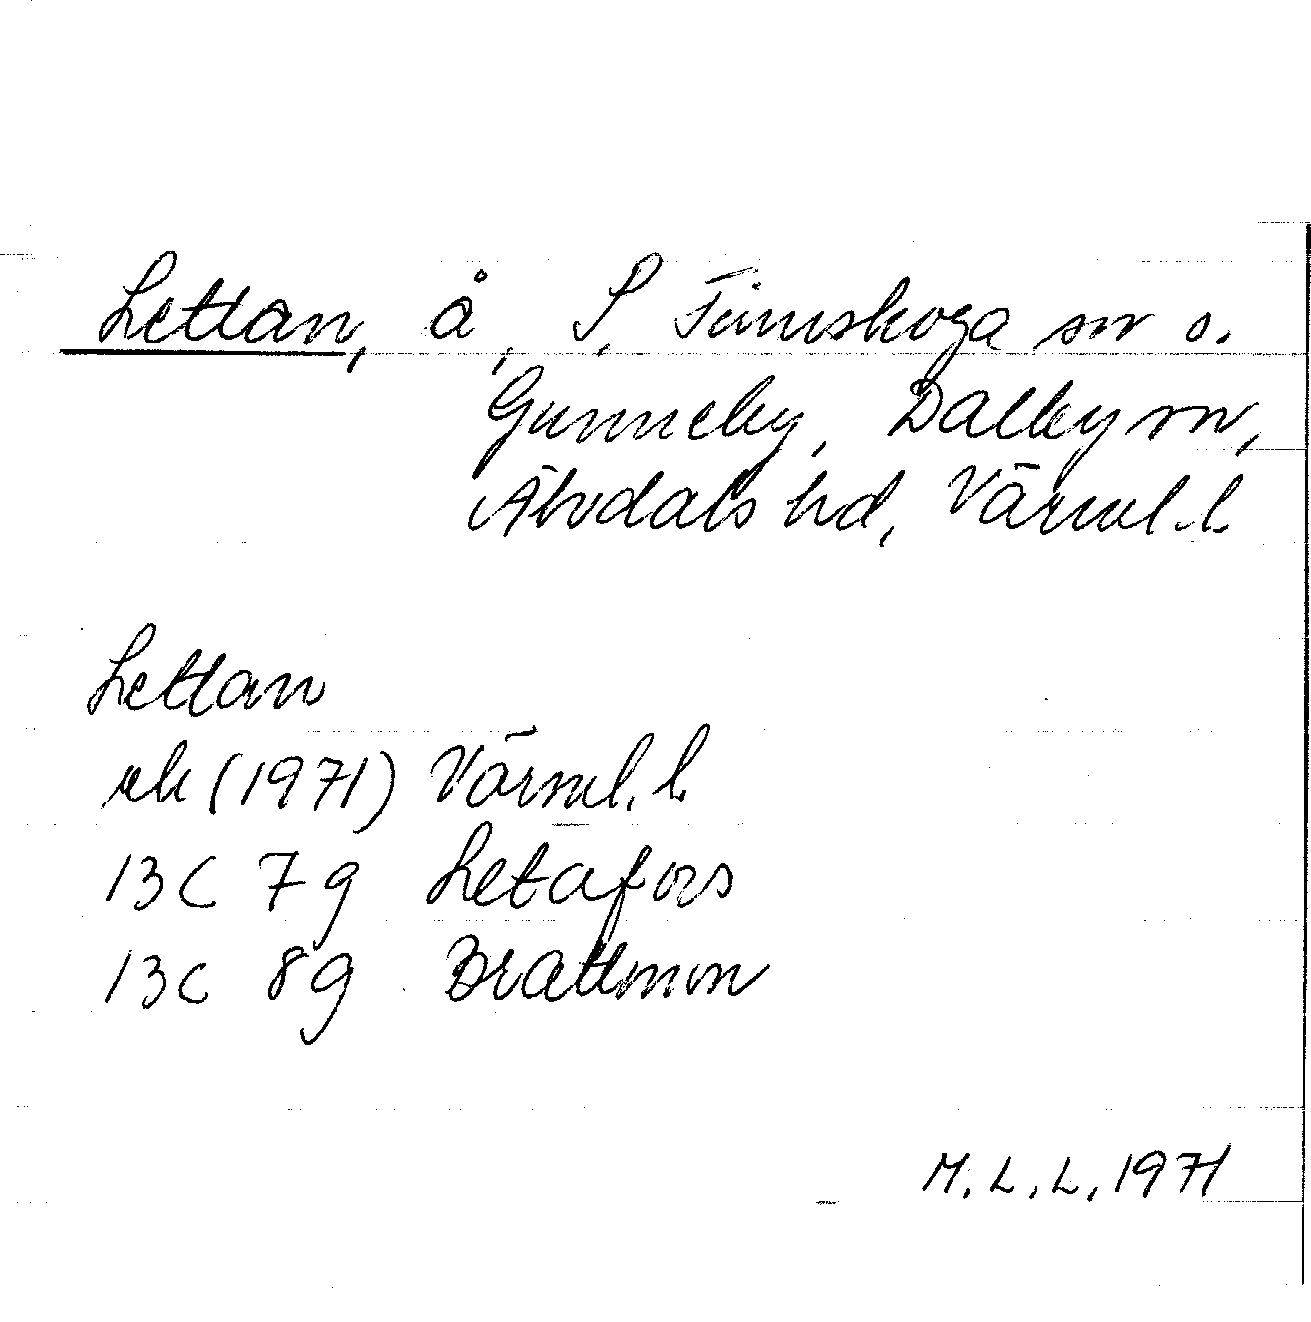 Lettan, å, S. Finnskoga sn o.
Gunneby, Dalby sn,
Älvdals hd, Värml. l.
Lettan
ek (1971) Värml. l.
13C 7g Letafors
13C 8g Brattmon
M. L. L, 1971